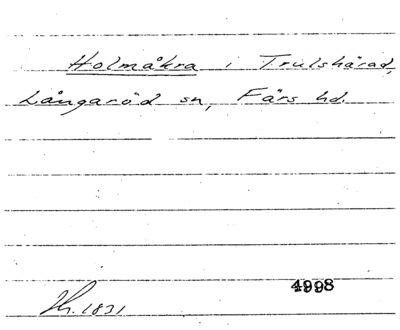 Holmåkra i Trulshärad,
Långaröd sn, Färs hd.
4998
Th. 1831